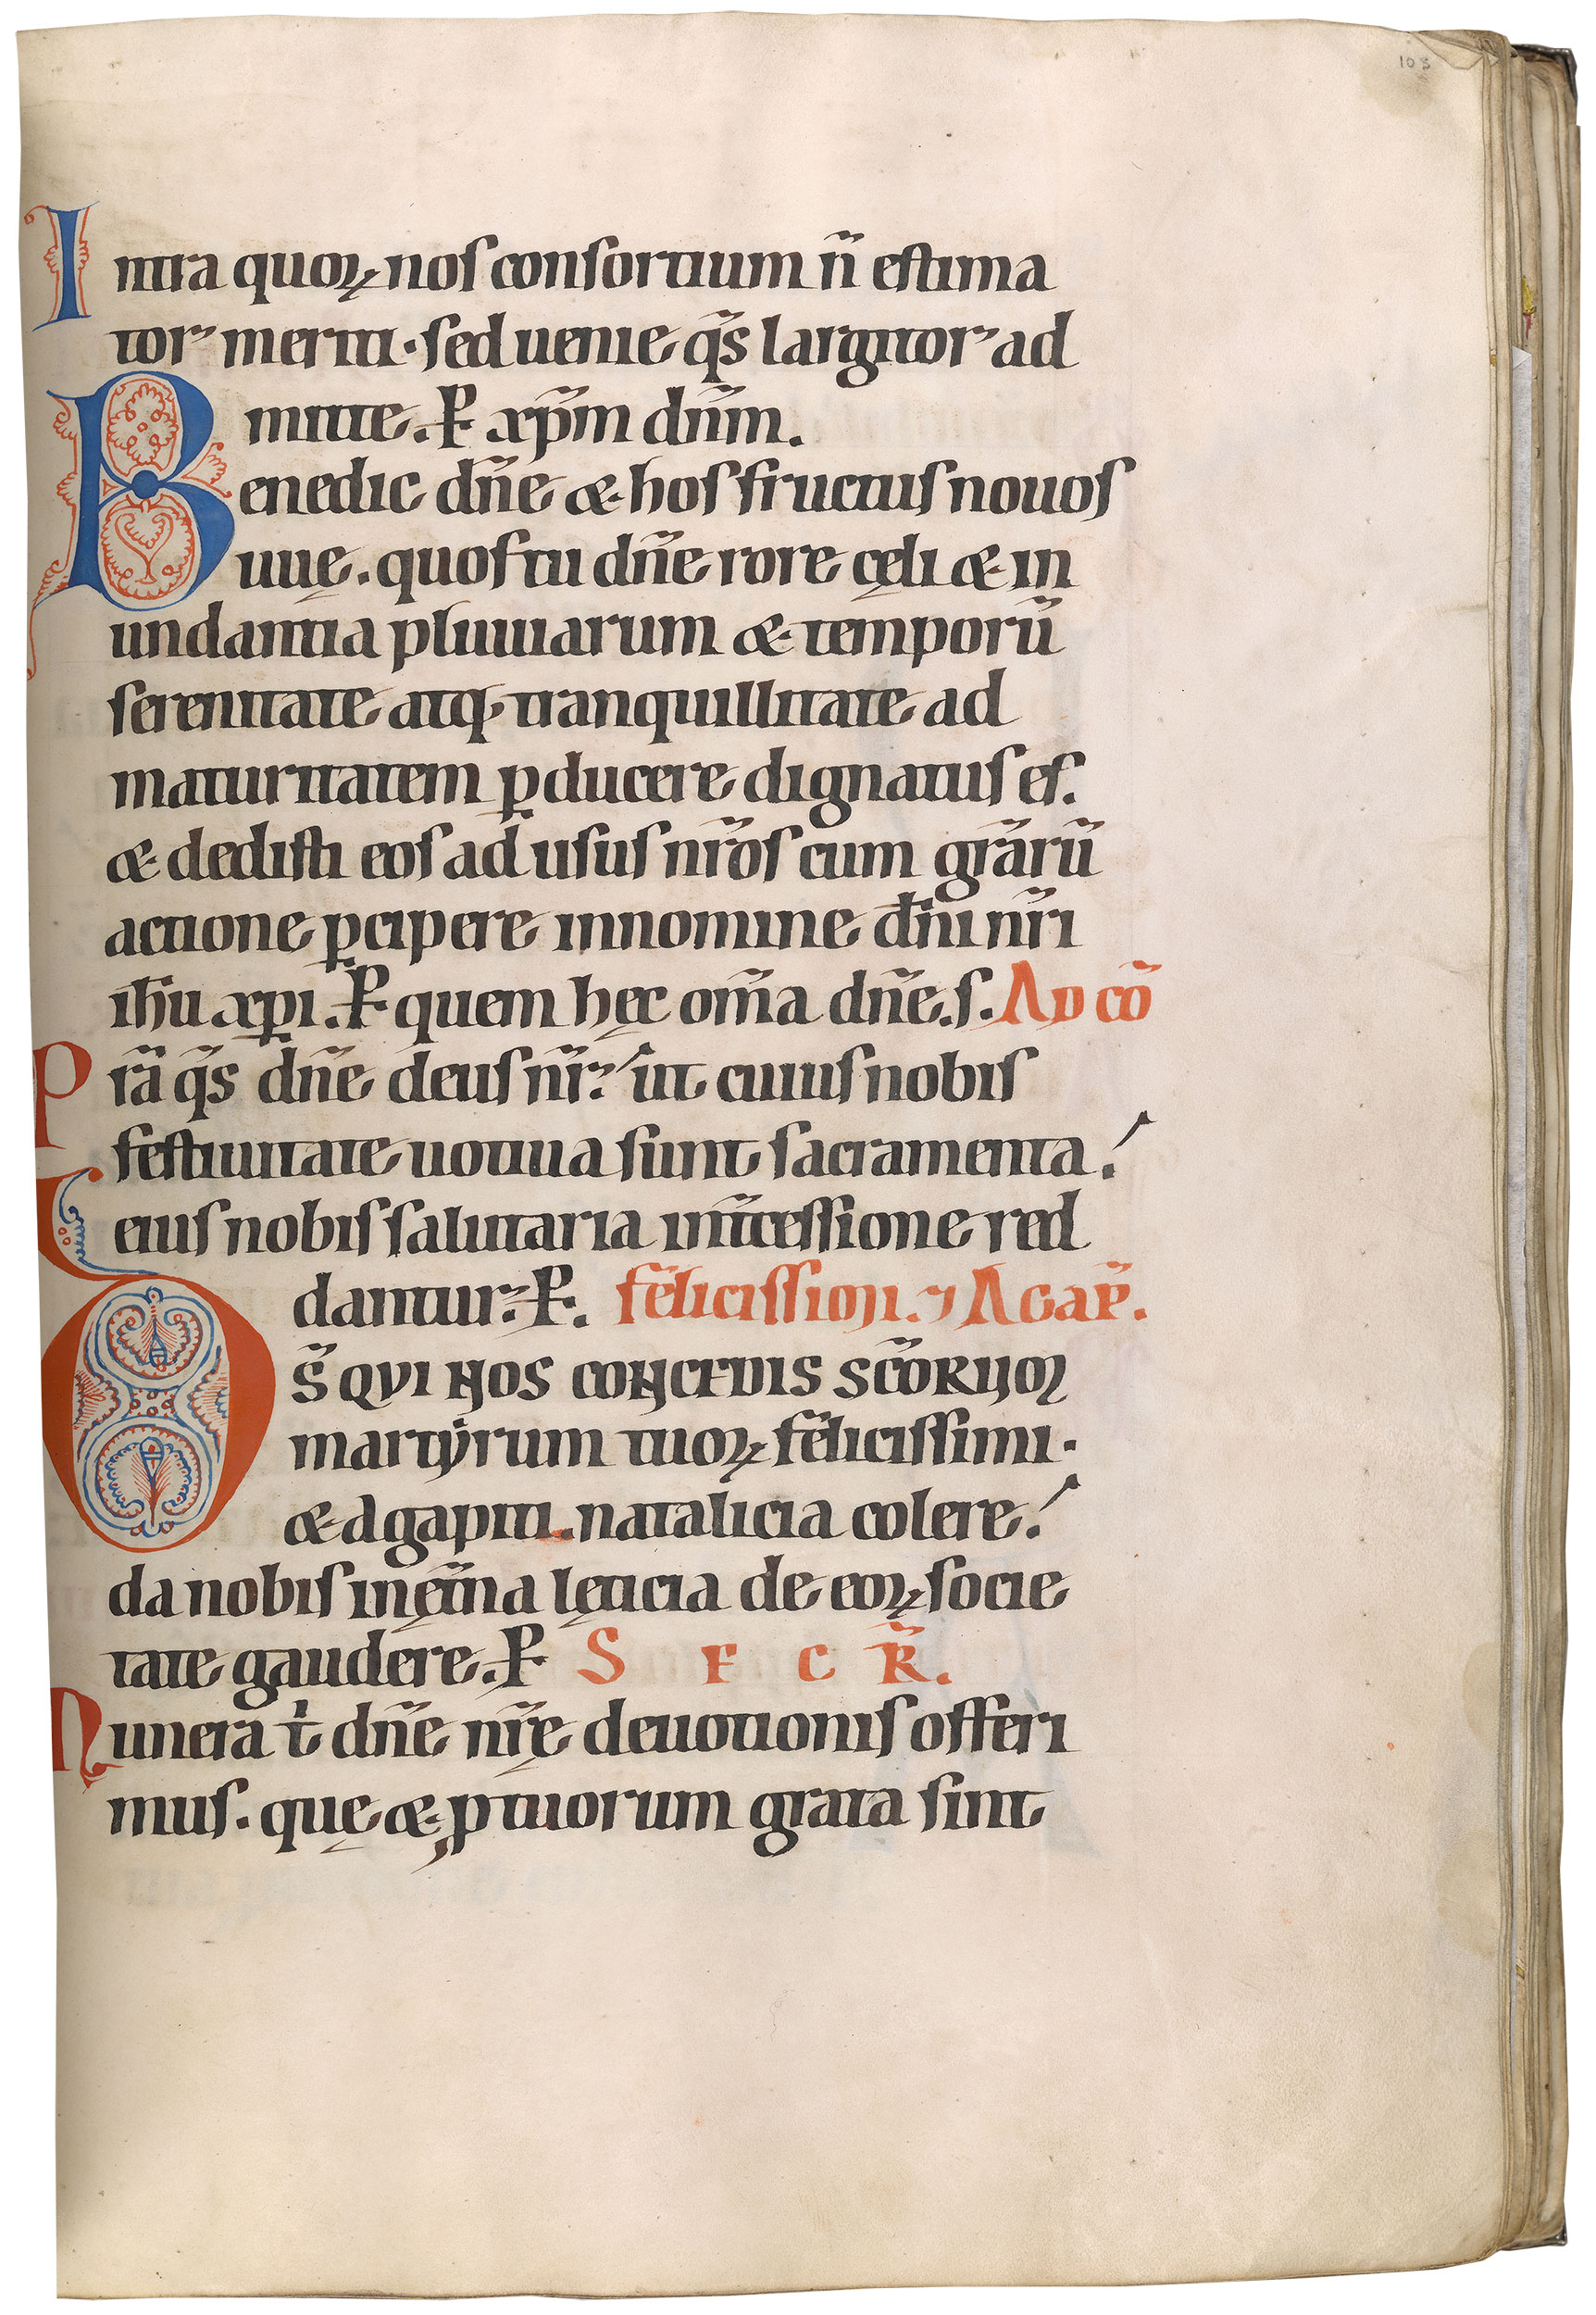 103
Intra quoꝝ nos consortium n̄ estima
tor meriti · sed uenie q̄s largitor ad
mitte. P̲ xp̄m dn̄m.
Benedic dn̄e & hos fructus nouos
uuę. quos tu dn̄e rore cęli & in
undantia pluuiarum & temporū
serenitate atq; tranquillitate ad
maturitatem ꝑducere dignatus es.
& dedisti eos ad usus nr̄os cum gr̄arū
actione ꝑcipere innomine dn̄i nr̄i
ih̄u xp̄i. P̲ quem hęc om̄a dn̄e. s. AD cō
Pr̄a q̄s dn̄e deus nr̄ ut cuius nobis
festiuitate uotiua sunt sacramenta.
eius nobis salutaria int̄cessione red
dantur. P̲. felicissimi. ⁊ AGap̄.
Ds̄ QVI NOS CONCEDIS SC̄ORUM
martẏrum tuoꝝ felicissimi ·
& agapiti. natalicia colere.
da nobis in ęt̄na lęticia de eoꝝ socie
tate gaudere. P̲ S F C R̄.
Munera t̄ dn̄e nr̄ę deuotionis offeri
mus. quę & ꝓ tuorum grata sint